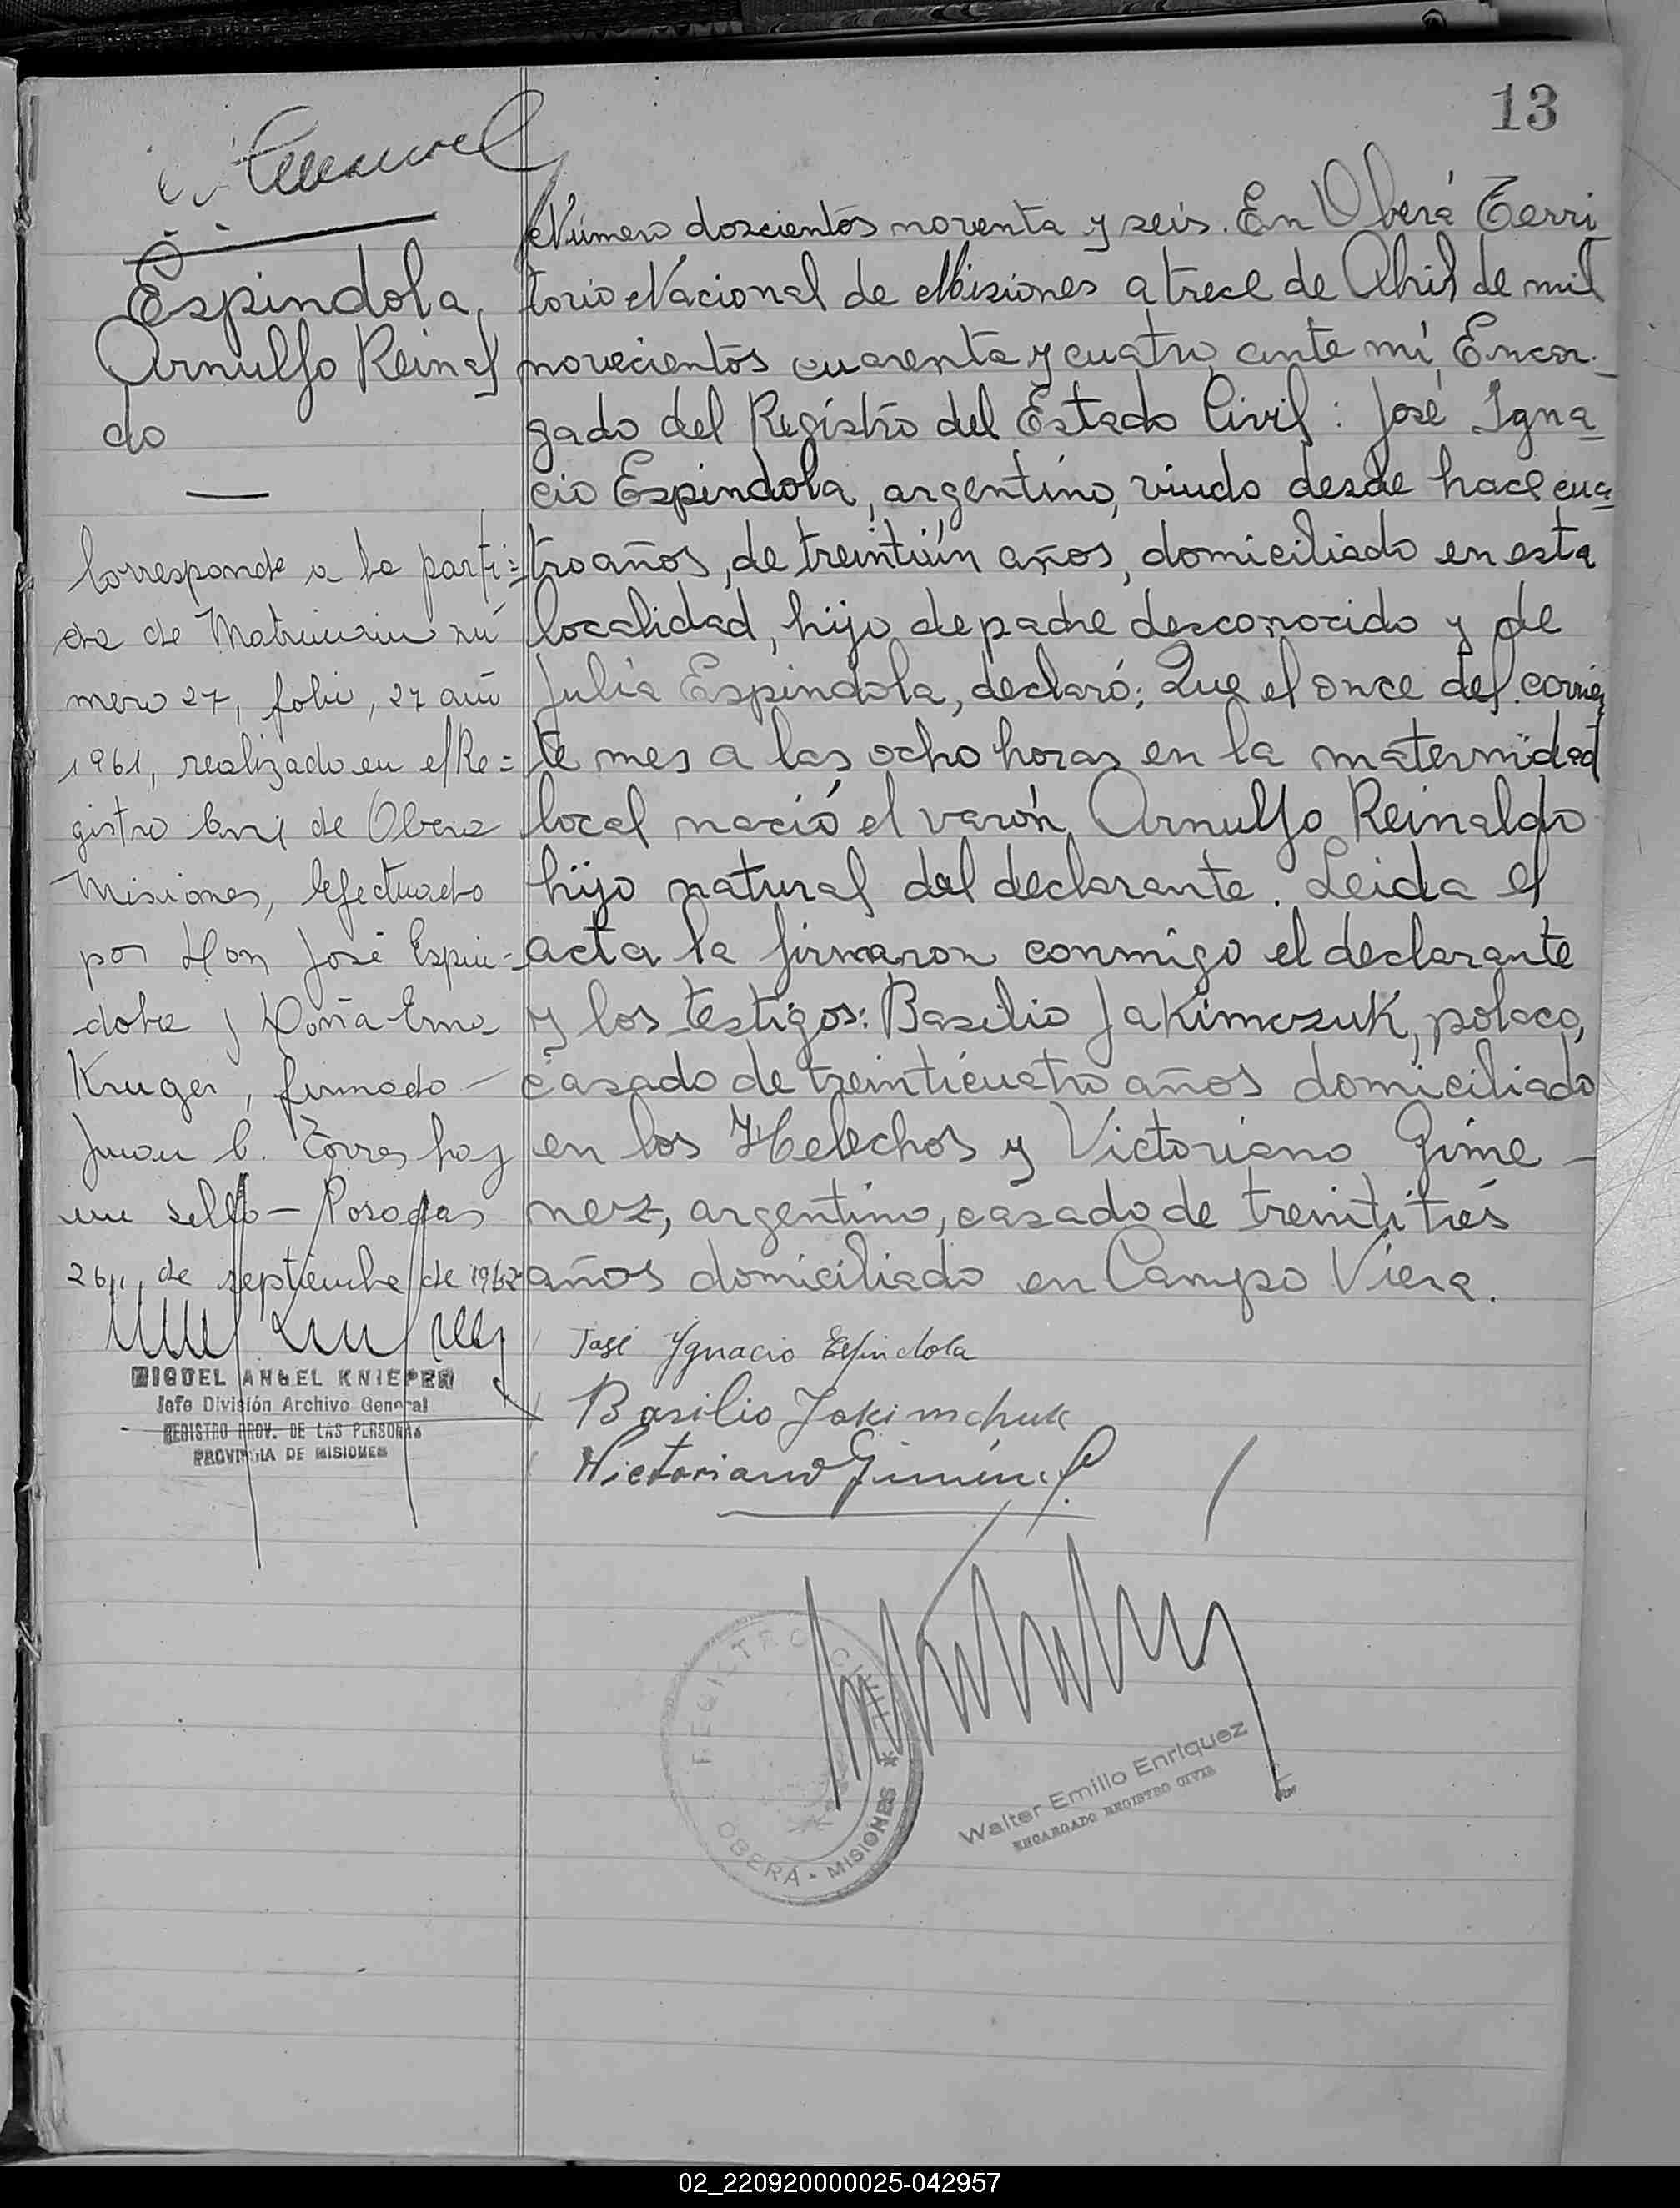 13
Espindola,
Arnulfo Reinal
do
Corresponde a la parti=
da de Matrimonio nú
mero 27, folio, 27 año
1961, realizado en el Re=
gistro Civil de Obera
Misiones, Efectuado
por Don José Espin-
dola y Doña Erna
Kruger, firmado —
Juan C. Torres hay
un sello — Posadas
26, de septiembre de 1962
MIGUEL ANGEL KNIEPER
Jefe División Archivo General
REGISTRO PROV. DE LAS PERSONAS
PROVINCIA DE MISIONES
Número doscientos noventa y seis. En Oberá Terri
torio Nacional de Misiones a trece de Abril de mil
novecientos cuarenta y cuatro, ante mí, Encar-
gado del Registro del Estado Civil: José Igna
cio Espindola, argentino, viudo desde hace cua
tro años, de treintiún años, domiciliado en esta
localidad, hijo de padre desconocido y de
Julia Espindola, declaró: Que el once del corrien
te mes a las ocho horas en la maternidad
local nació el varón Arnulfo Reinaldo
hijo natural del declarante. Leida el
acta la firmaron conmigo el declarante
y los testigos: Basilio Jakimczuk, polaco,
casado de treinticuatro años domiciliado
en los Helechos y Victoriano Gime —
nez, argentino, casado de treintitrés
años domiciliado en Campo Viera.
José Ygnacio Espindola
Basilio Jakimchuk
Victoriano Giménez
REGISTRO CIVIL * OBERA - MISIONES *
Walter Emilio Enriquez
ENCARGADO REGISTRO CIVIL
02_220920000025-042957